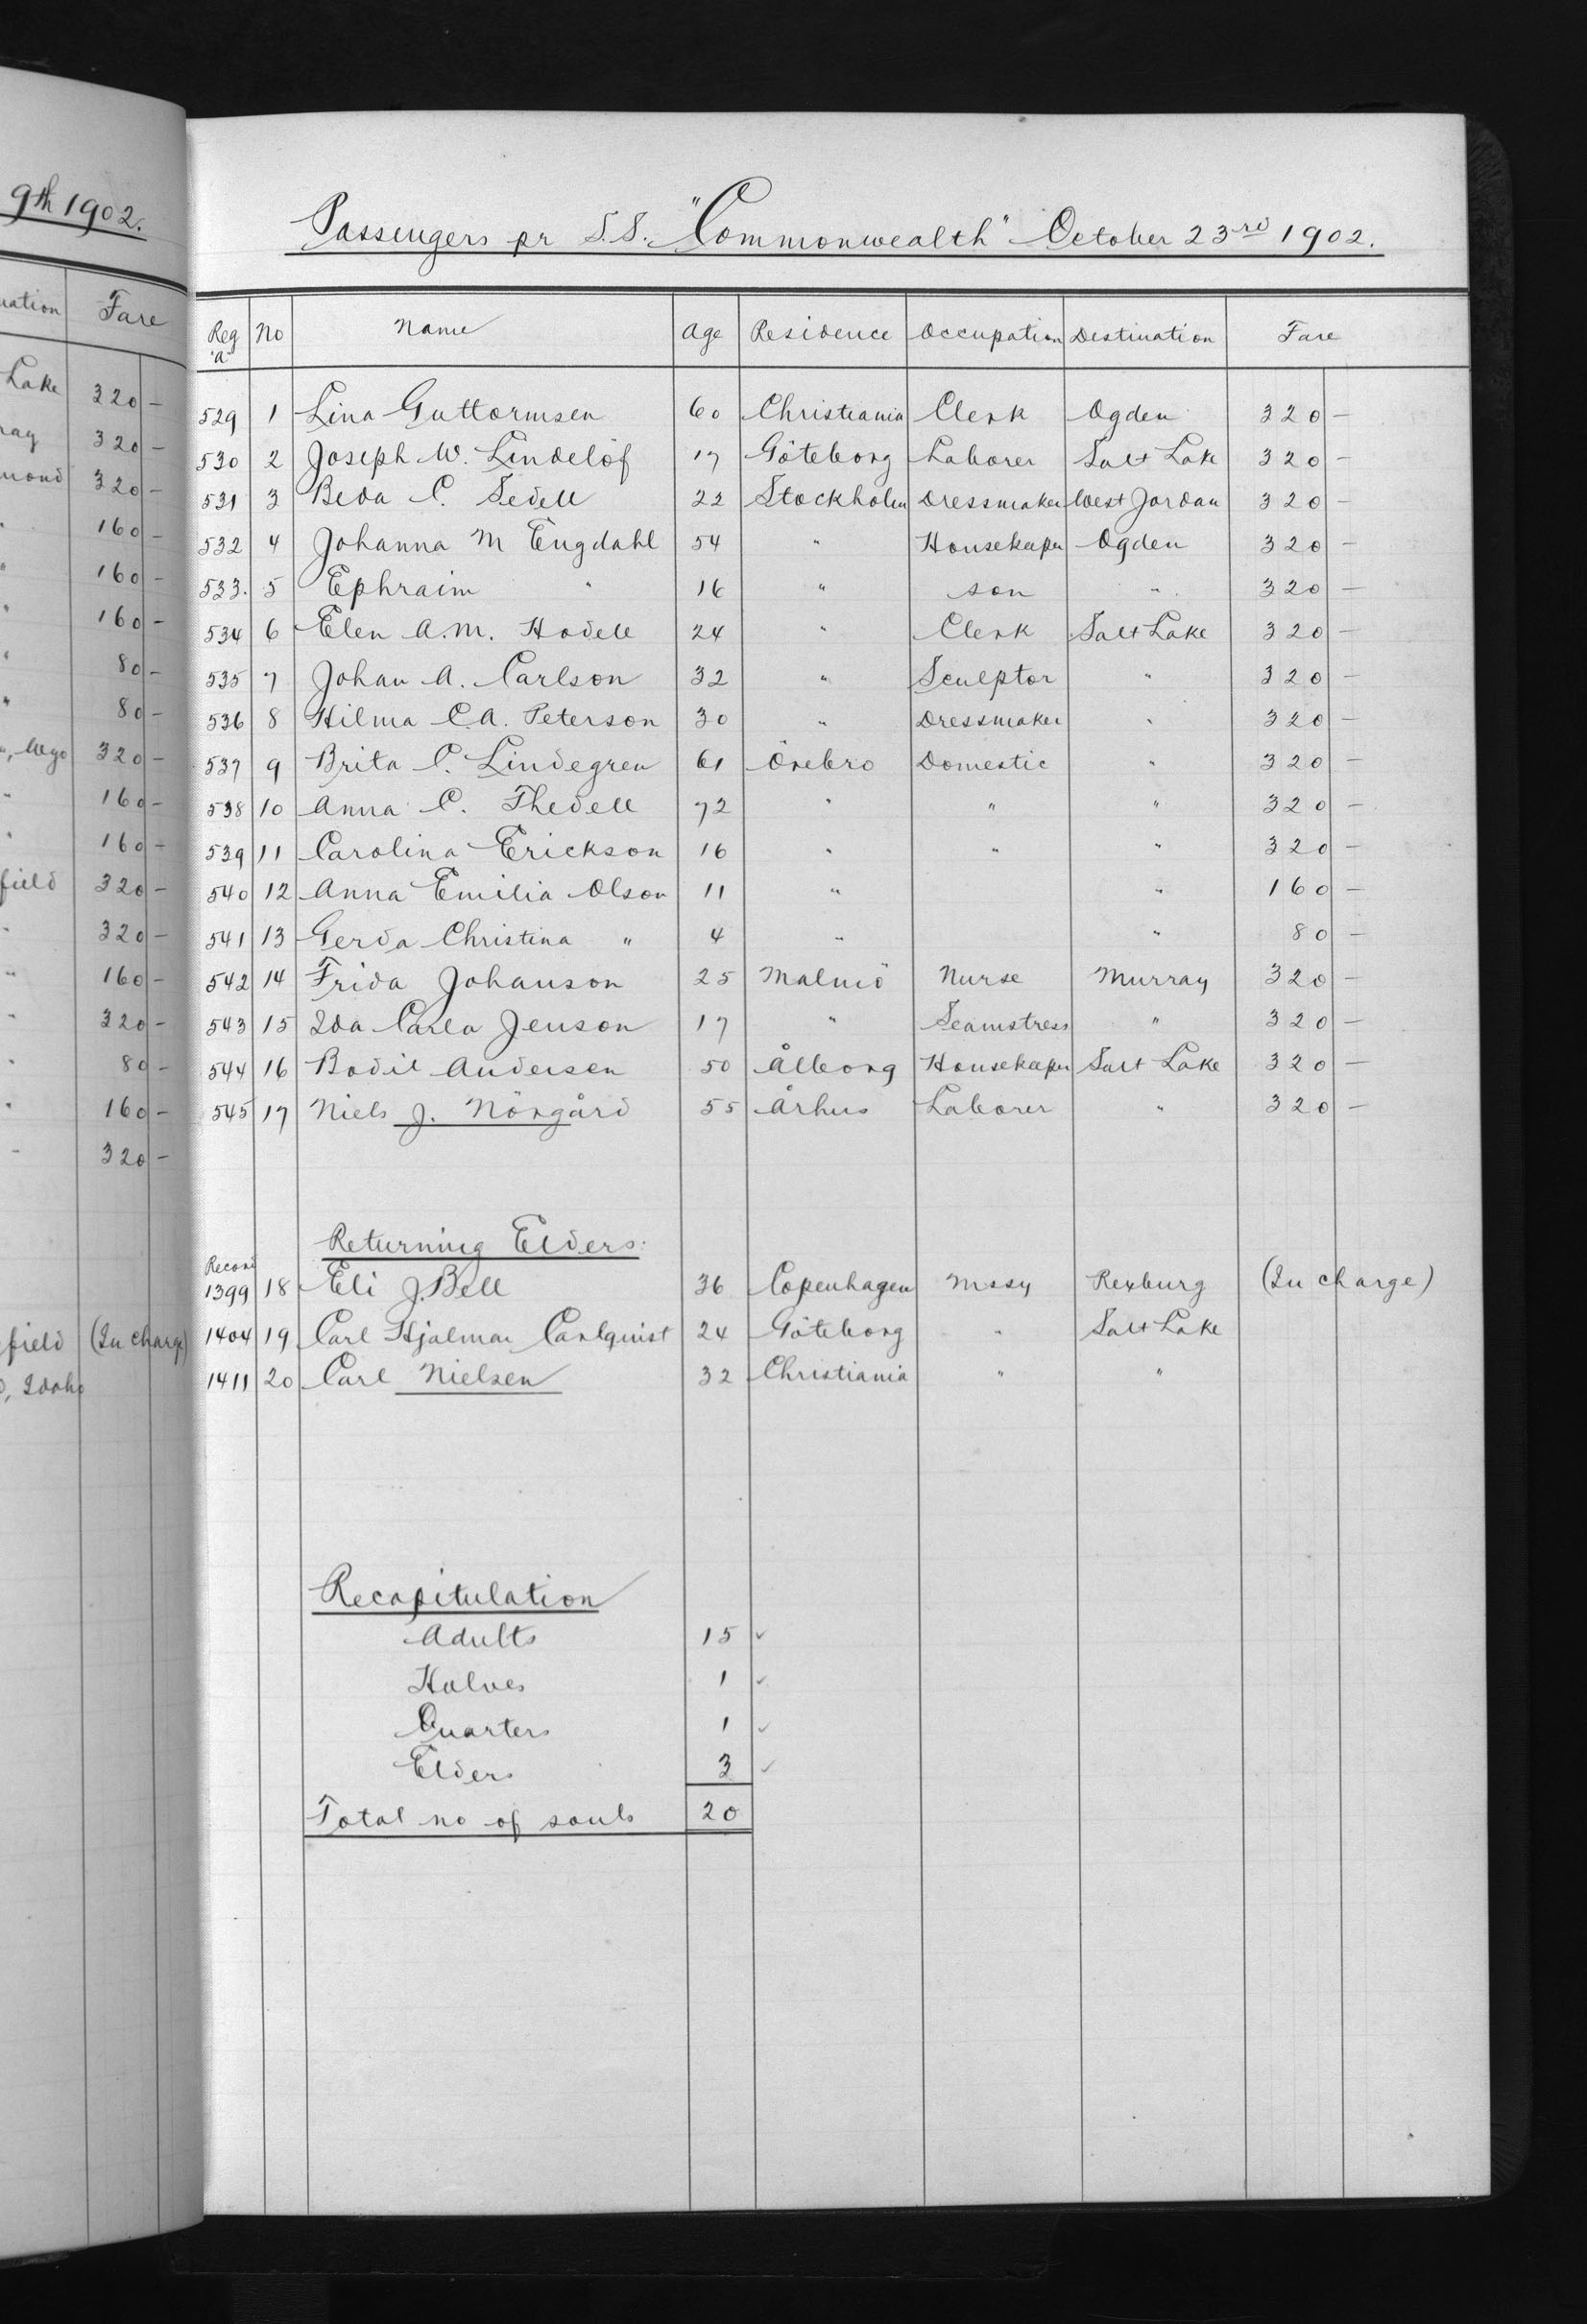 9th 1902.
uation Fare
Lake 320 –
ray 320 –
mond 320 –
" 160 –
" 160 –
" 160 –
" 80 –
" 80 –
, Wyo 320 –
" 160 –
" 160 –
field 320 –
" 320 –
" 160 –
" 320 –
" 80 –
" 160 –
" 320 –
field (In charge)
, Idaho
Passengers pr S.S. "Commonwealth" October 23rd 1902.
Reg "a" No Name Age Residence Occupation Destination Fare
529 1 Lina Guttormsen 60 Christiania Clerk Ogden 320 –
530 2 Joseph W. Lindelöf 17 Göteborg Laborer Salt Lake 320 –
531 3 Beda C. Sedell 22 Stockholm Dressmaker West Jordan 320 –
532 4 Johanna M Engdahl 54 " Housekeeper Ogden 320 –
533. 5 Ephraim " 16 " son " 320 –
534 6 Elen A.M. Hodell 24 " Clerk Salt Lake 320 –
535 7 Johan A. Carlson 32 " Sculptor " 320 –
536 8 Hilma C.A. Peterson 30 " Dressmaker " 320 –
537 9 Brita C. Lindegren 61 Örebro Domestic " 320 –
538 10 Anna C. Thedell 72 " " " 320 –
539 11 Carolina Erickson 16 " " " 320 –
540 12 Anna Emilia Olson 11 " " 160 –
541 13 Gerda Christina " 4 " " 80 –
542 14 Frida Johanson 25 Malmö Nurse Murray 320 –
543 15 Ida Carla Jenson 17 " Seamstress " 320 –
544 16 Bodil Andersen 50 Ålborg Housekeeper Salt Lake 320 –
545 17 Niels J. Nörgård 55 Århus Laborer " 320 –
Returning Elders:
Record
1399 18 Eli J. Bell 36 Copenhagen Mssy Rexburg (In charge)
1404 19 Carl Hjalmar Carlquist 24 Göteborg " Salt Lake
1411 20 Carl Nielsen 32 Christiania " "
Recapitulation
Adults 15 ✓
Halves 1 ✓
Quarters 1 ✓
Elders 3 ✓
Total no of souls 20